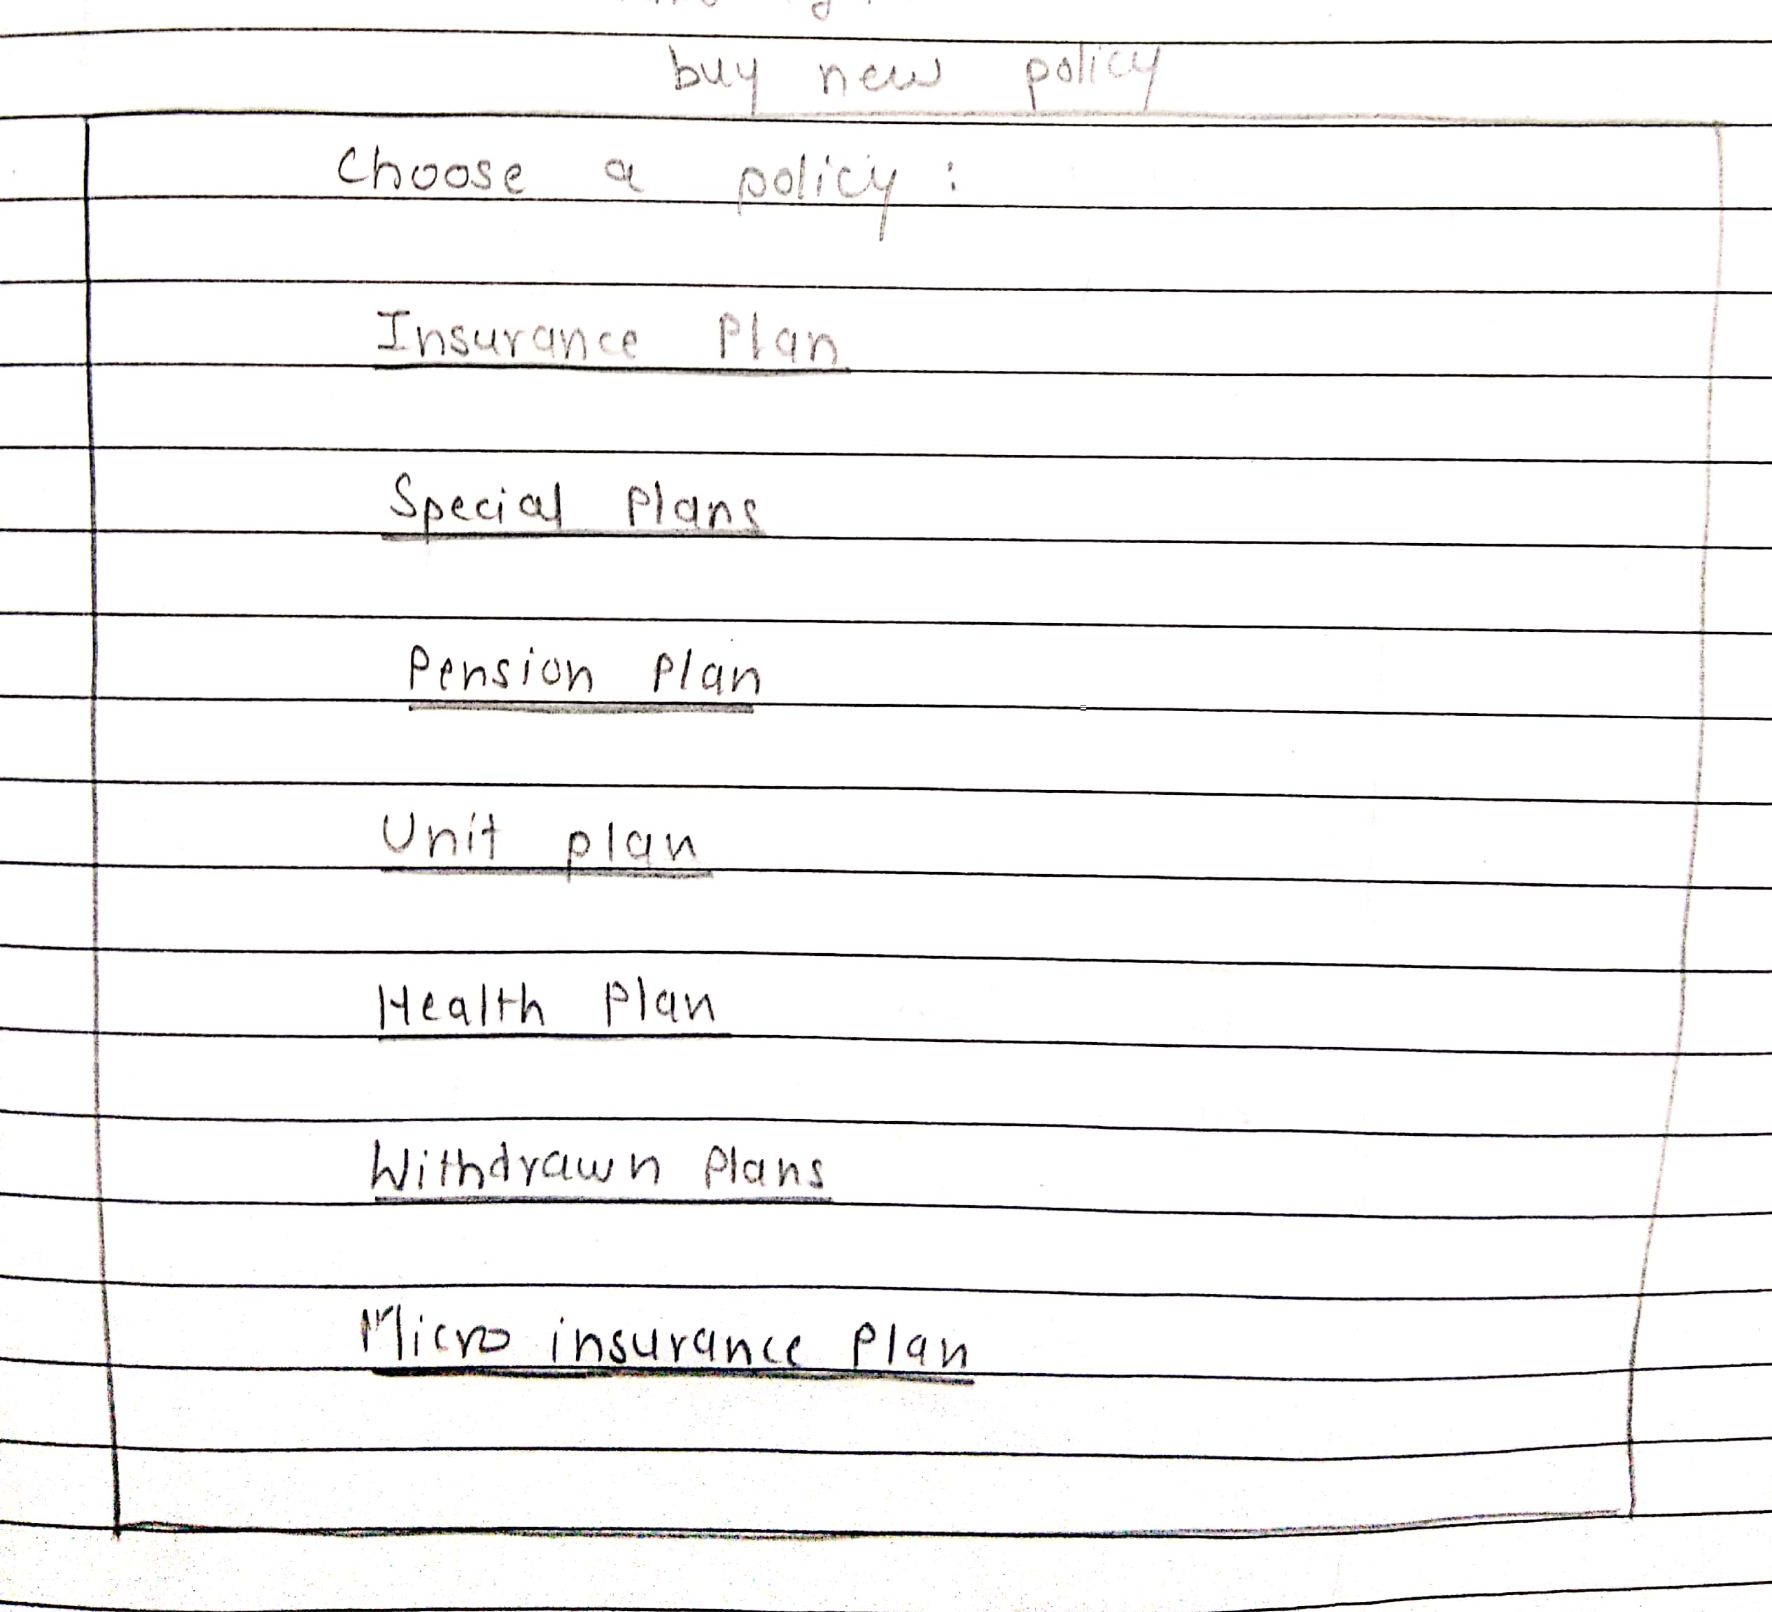 buy new policy
Choose a policy :
Insurance Plan
Special Plans
Pension Plan
Unit plan
Health Plan
Withdrawn Plans
Micro insurance Plan